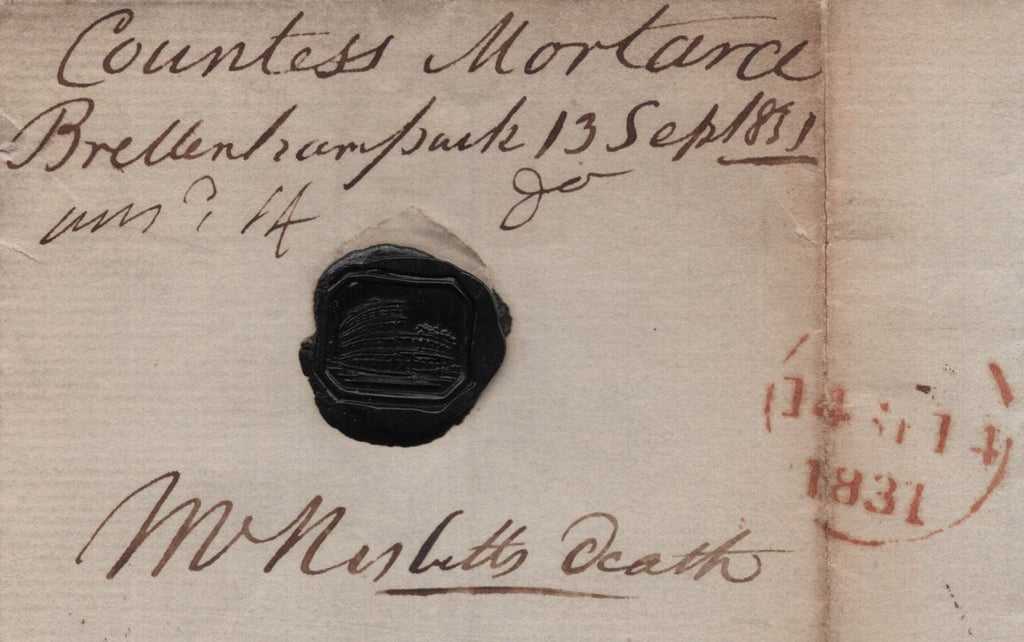 Countess Mortara
Brettenhampark 13 Sept 1831
ansd 14 do
Mr Nesbitts Death
14 14
1831